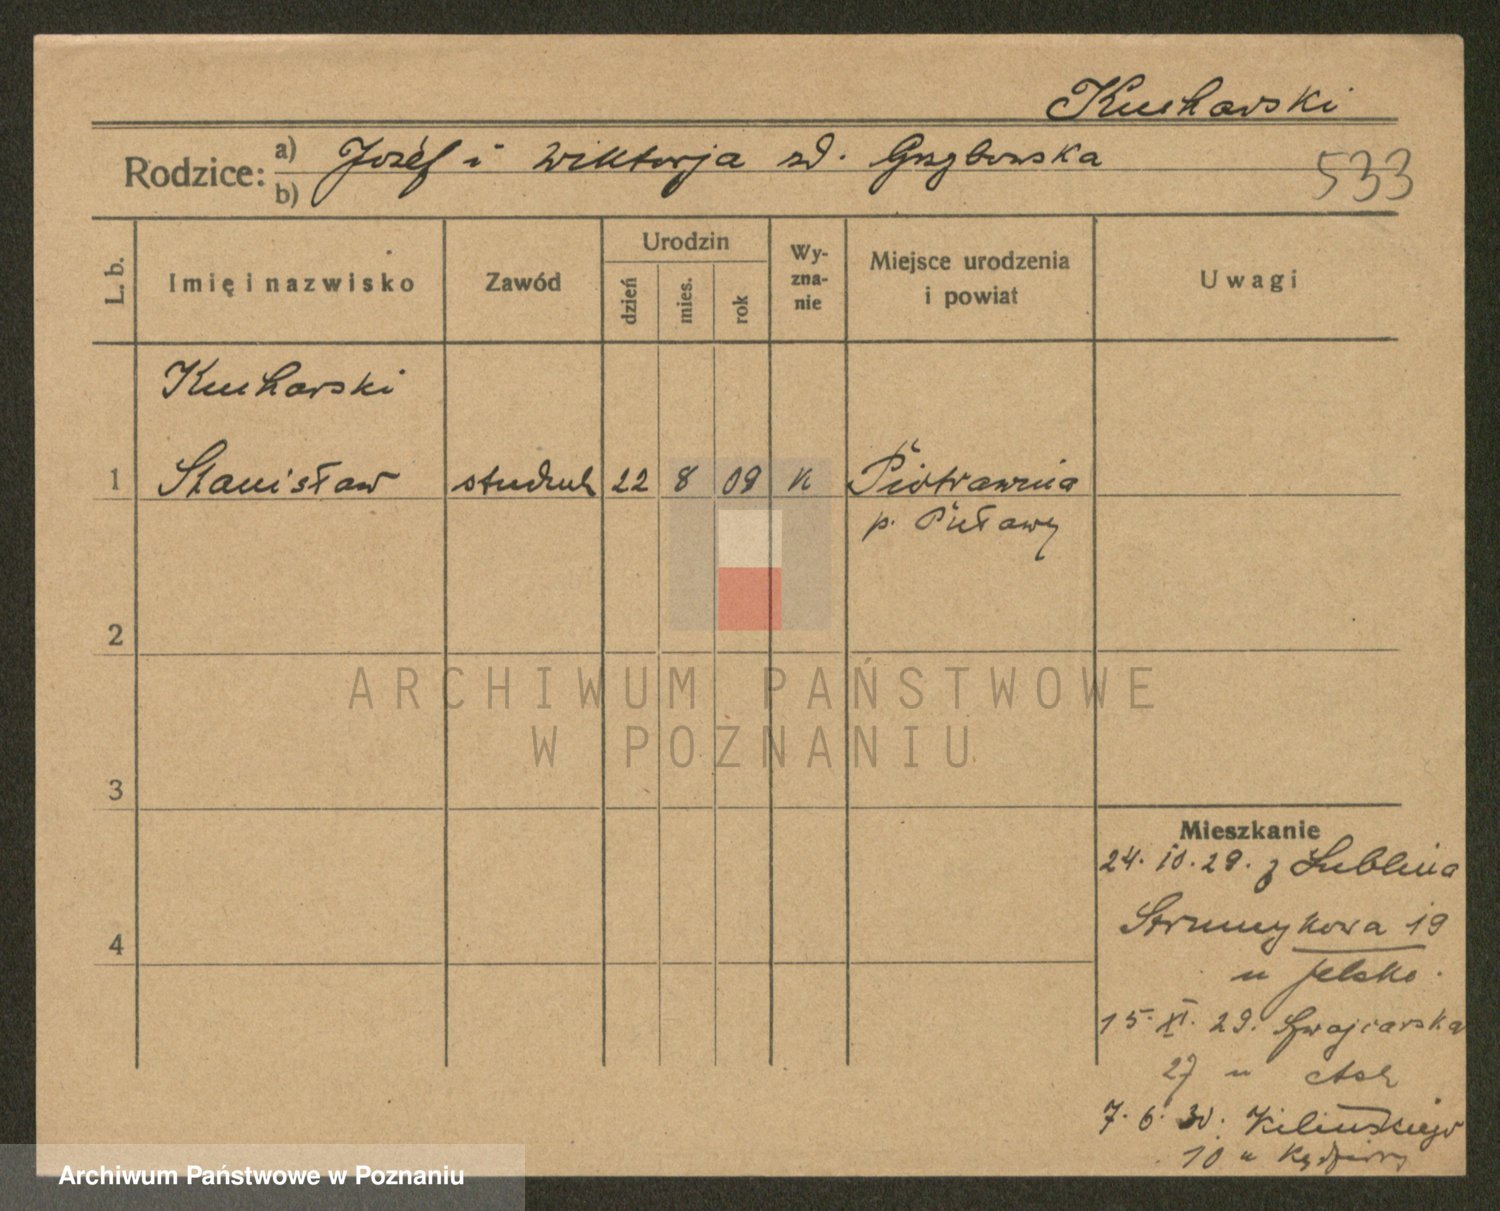 Kucharski
Rodzice: a) Józef i Wiktorja zd. Grzybowska
b)
533
L. b.
Imię i nazwisko
Zawód
Urodzin
dzień
mies.
rok
Wy-
zna-
nie
Miejsce urodzenia
i powiat
Uwagi
Kucharski
1 Stanisław student 22 8 09 k Piotrawina
p. Puławy
2
3
4
ARCHIWUM PAŃSTWOWE
W POZNANIU
Mieszkanie
24. 10. 29. z Lublina
Strumykowa 19
u
15. XI. 29. Szwajcarska
27 u
7. 6. 30. Kilińskiego
10 u
Archiwum Państwowe w Poznaniu